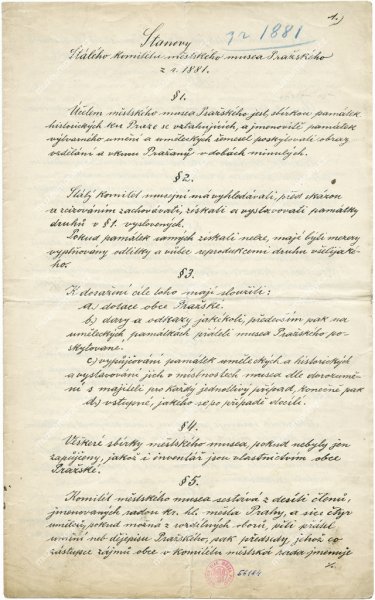 1.)
z r 1881
Stanovy
Stálého komitétu městského musea Pražského
z r. 1881.
§ 1.
Účelem městského musea Pražského jest, sbírkou památek
historických ku Praze se vztahujících, a jmenovitě památek
výtvarného umění a uměleckých řemesel poskytovati obraz
vzdělání a vkusu Pražanů v dobách minulých.
§ 2.
Stálý komitét musejní má vyhledávati, před zkázou
a zcizováním zachovávati, získati a vystavovati památky
druhů v § 1. vyslovených.
Pokud památek samých získati nelze, mají býti mezery
vyplňovány odlitky a vůbec reprodukcemi druhu všelijaké-
ho.
§ 3.
K dosažení cíle toho mají sloužiti:
a.) dotace obce Pražské.
b.) dary a odkazy jakékoli, především pak na
uměleckých památkách přátelé musea Pražského po-
skytované.
c.) vypůjčování památek uměleckých a historických
a vystavování jich v místnostech musea dle dorozumě-
ní s majiteli pro každý jednotlivý případ, konečně pak
d.) vstupné, jakého se po případě docílí.
§ 4.
Veškeré sbírky městského musea, pokud nebyly jen
zapůjčeny, jakož i inventář jsou vlastnictvím obce
Pražské.
§ 5.
Komitét městského musea sestává z desíti členů,
jmenovaných radou kr. hl. města Prahy, a sice čtyř
umělců, pokud možná z rozdílných oborů, pěti přátel
umění neb dějepisu Pražského, pak předsedy, jehož co
zástupce zájmů obce v komitétu městská rada jmenuje